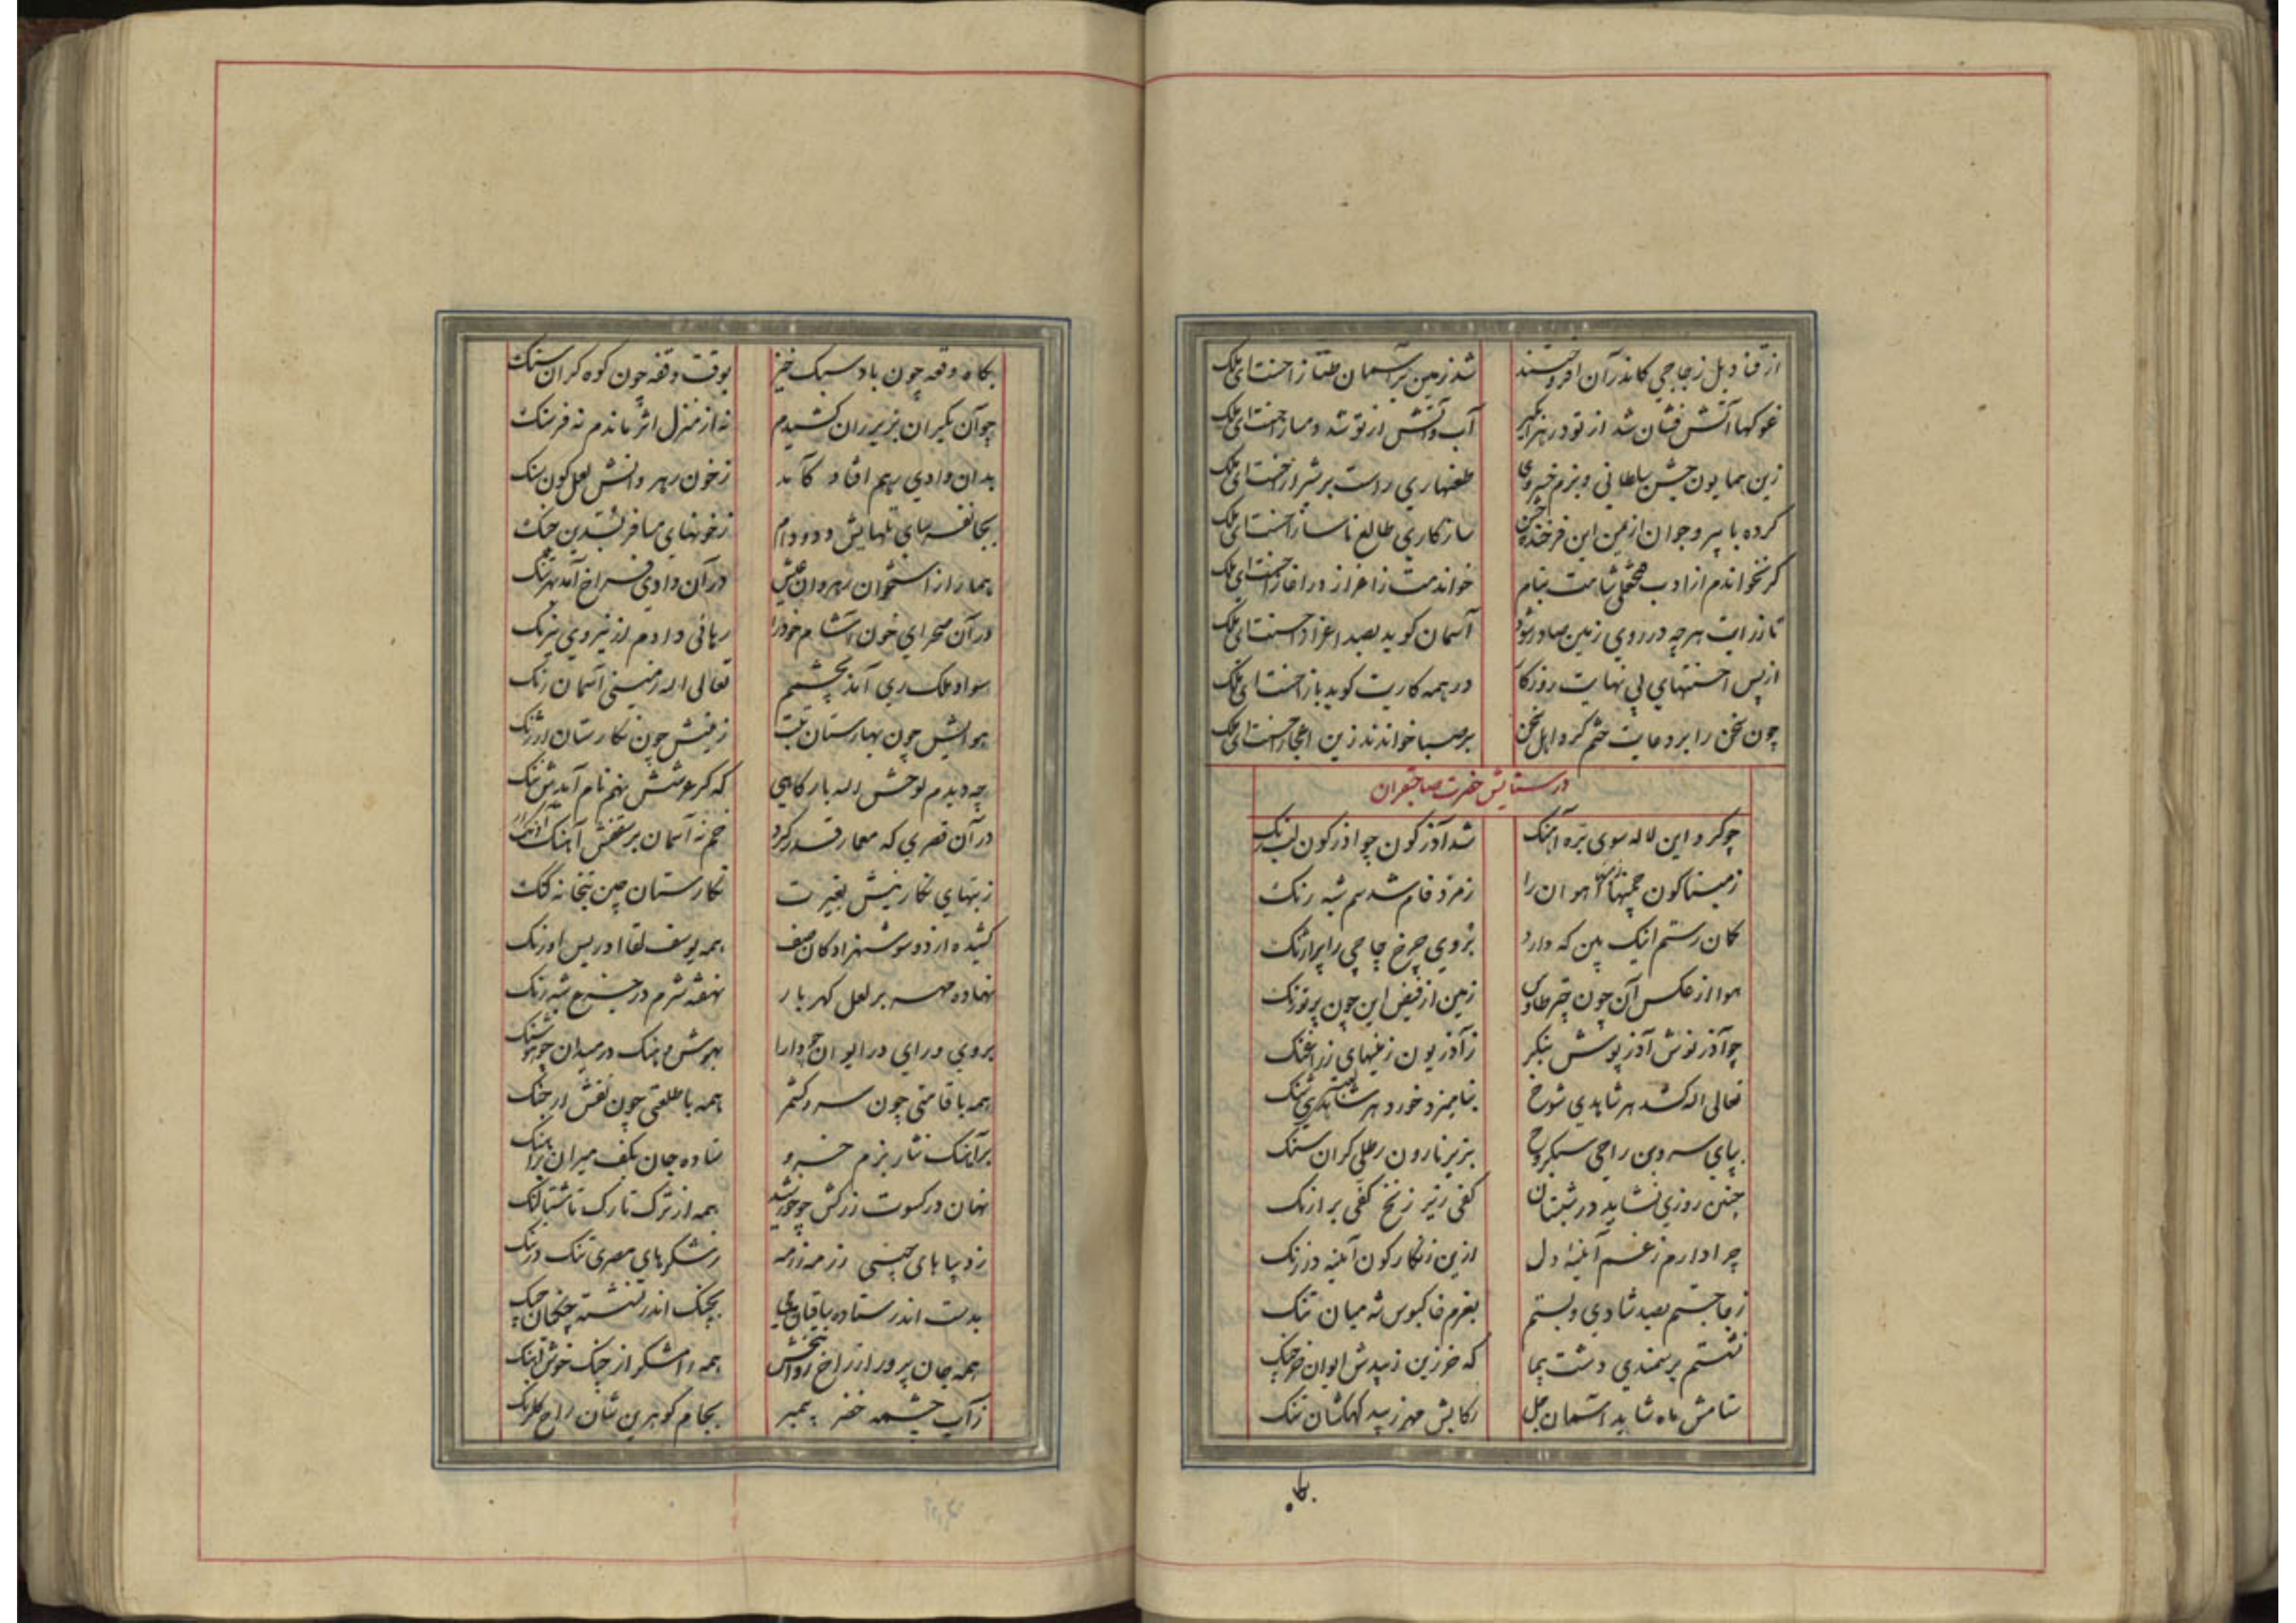 از قنادیل زجاجی کاندرآن افروختند شد زمین بر آسمان طناز احسنت ای ملک
غوکها آتش فشان شد از تو در آب وآتش از تو شد دمساز احسنت ای ملک
زین همایون جشن سلطانی و بزم خسروی راست بر شیراز احسنت ای ملک
کرده با پیر و جوان از یمن این فرخنده جشن سازکاری طالع ناساز احسنت ای ملک
کر نخواندم از ادب بنام خواندمت ز اغاز احسنت ای ملک
هرچه در روی زمین صادر شود آسمان کوید بصد اعزاز احسنت ای ملک
از پس احسنتهای بی نهایت روزکار در همه کاریت کوید باز احسنت ای ملک
چون سخن را بر دعایت ختم کرد اهل سخن بر صبا خوانند زین اعجاز احسنت ای ملک
در ستایش حضرت صاحبقران
چو کرد این لاله سوی بره آهنک شد آذرکون چو اذرکون
زمیناکون آهوان را زمرد فام شد سم شبه رنک
کمان رستم اینک بین که دارد بروی چرخ چاچی را پر ازنک
هوا از عکس آن چون چتر طاوس زمین از فیض این چون پر تورنک
چو آذر نوش آذر پوش بنکر ز آذریون زمینهای زراغنک
تعالی اله کشد هر شاهدی شوخ بنامیزد خورد هر
بپای سرو بن راحی سبکروح بزیر نارون رطلی کران سنک
چنین روزی نشاید در شبستان کفی زیر زنخ کفی بر ازنک
چرا دارم ز غم آیینه دل ازین زنکارکون آیینه در زنک
ز جا جستم بصد شادی و بستم بعزم خاکبوس شه میان تنک
نشستم بر سمندی دشت پیما که خر زین زیبدش ایوان خرچنک
ستامش ماه شاید آسمان جل رکابش مهر زیبد کهکشان تنک
بکاه
بکاه وقعه چون باد سبک خیز بوقت وقفه چون کوه کران سنک
چو آن یکران بزیر ران کشیدم نه از منزل اثر ماندم نه فرسنک
بدان وادی رهم افتاد کآمد ز خون رهروانش لعل کون سنک
بجا دد و دام ز خونهای مسافر
هما را از استخوان رهروان عیش در آن وادی فراخ آمد
در آن صحرای خون آشام خود را رهانی دادم از نیروی نیرنک
سواد ملک ری آمد بچشمم تعالی اله زمینی آسمان رنک
هوایش چون بهارستان تبت زمینش چون نکارستان ارژنک
چه دیدم لوحش اله بارکاهی که کر عرشش نهم نام آیدش ننک
در آن قصری که معمار قدر کرد خم نه آسمان بر سقفش آهنک
ز بتهای نکارینش بغیرت نکارستان چین بتخانه کنک
کشیده از دو سو شهزادکان صف همه یوسف لقا ادریس اورنک
نهاده مهر بر لعل کهر بار نهفته شرم در جزع شبه رنک
بروی ورای در ایوان چو دارا بهوش و هنک در میدان چو هوشنک
همه با قامتی چون سرو کشمر همه با طلعتی چون نقش ارجنک
بر آهنک نثار بزم خسرو ستاده جان بکف میران
نهان در کسوت زرکش چو خورشید همه از ترک تارک تا شتالنک
ز دیباهای چینی رزمه رزمه ز شکرهای مصری تنک در تنک
بدست اندر ستاده بچنک اندر نشسته
همه جان پرور از راح روانبخش همه رامشکر از چنک خوش آهنک
ز آب چشمه خضر پیمبر بجام کوهرین شان راح کلرنک